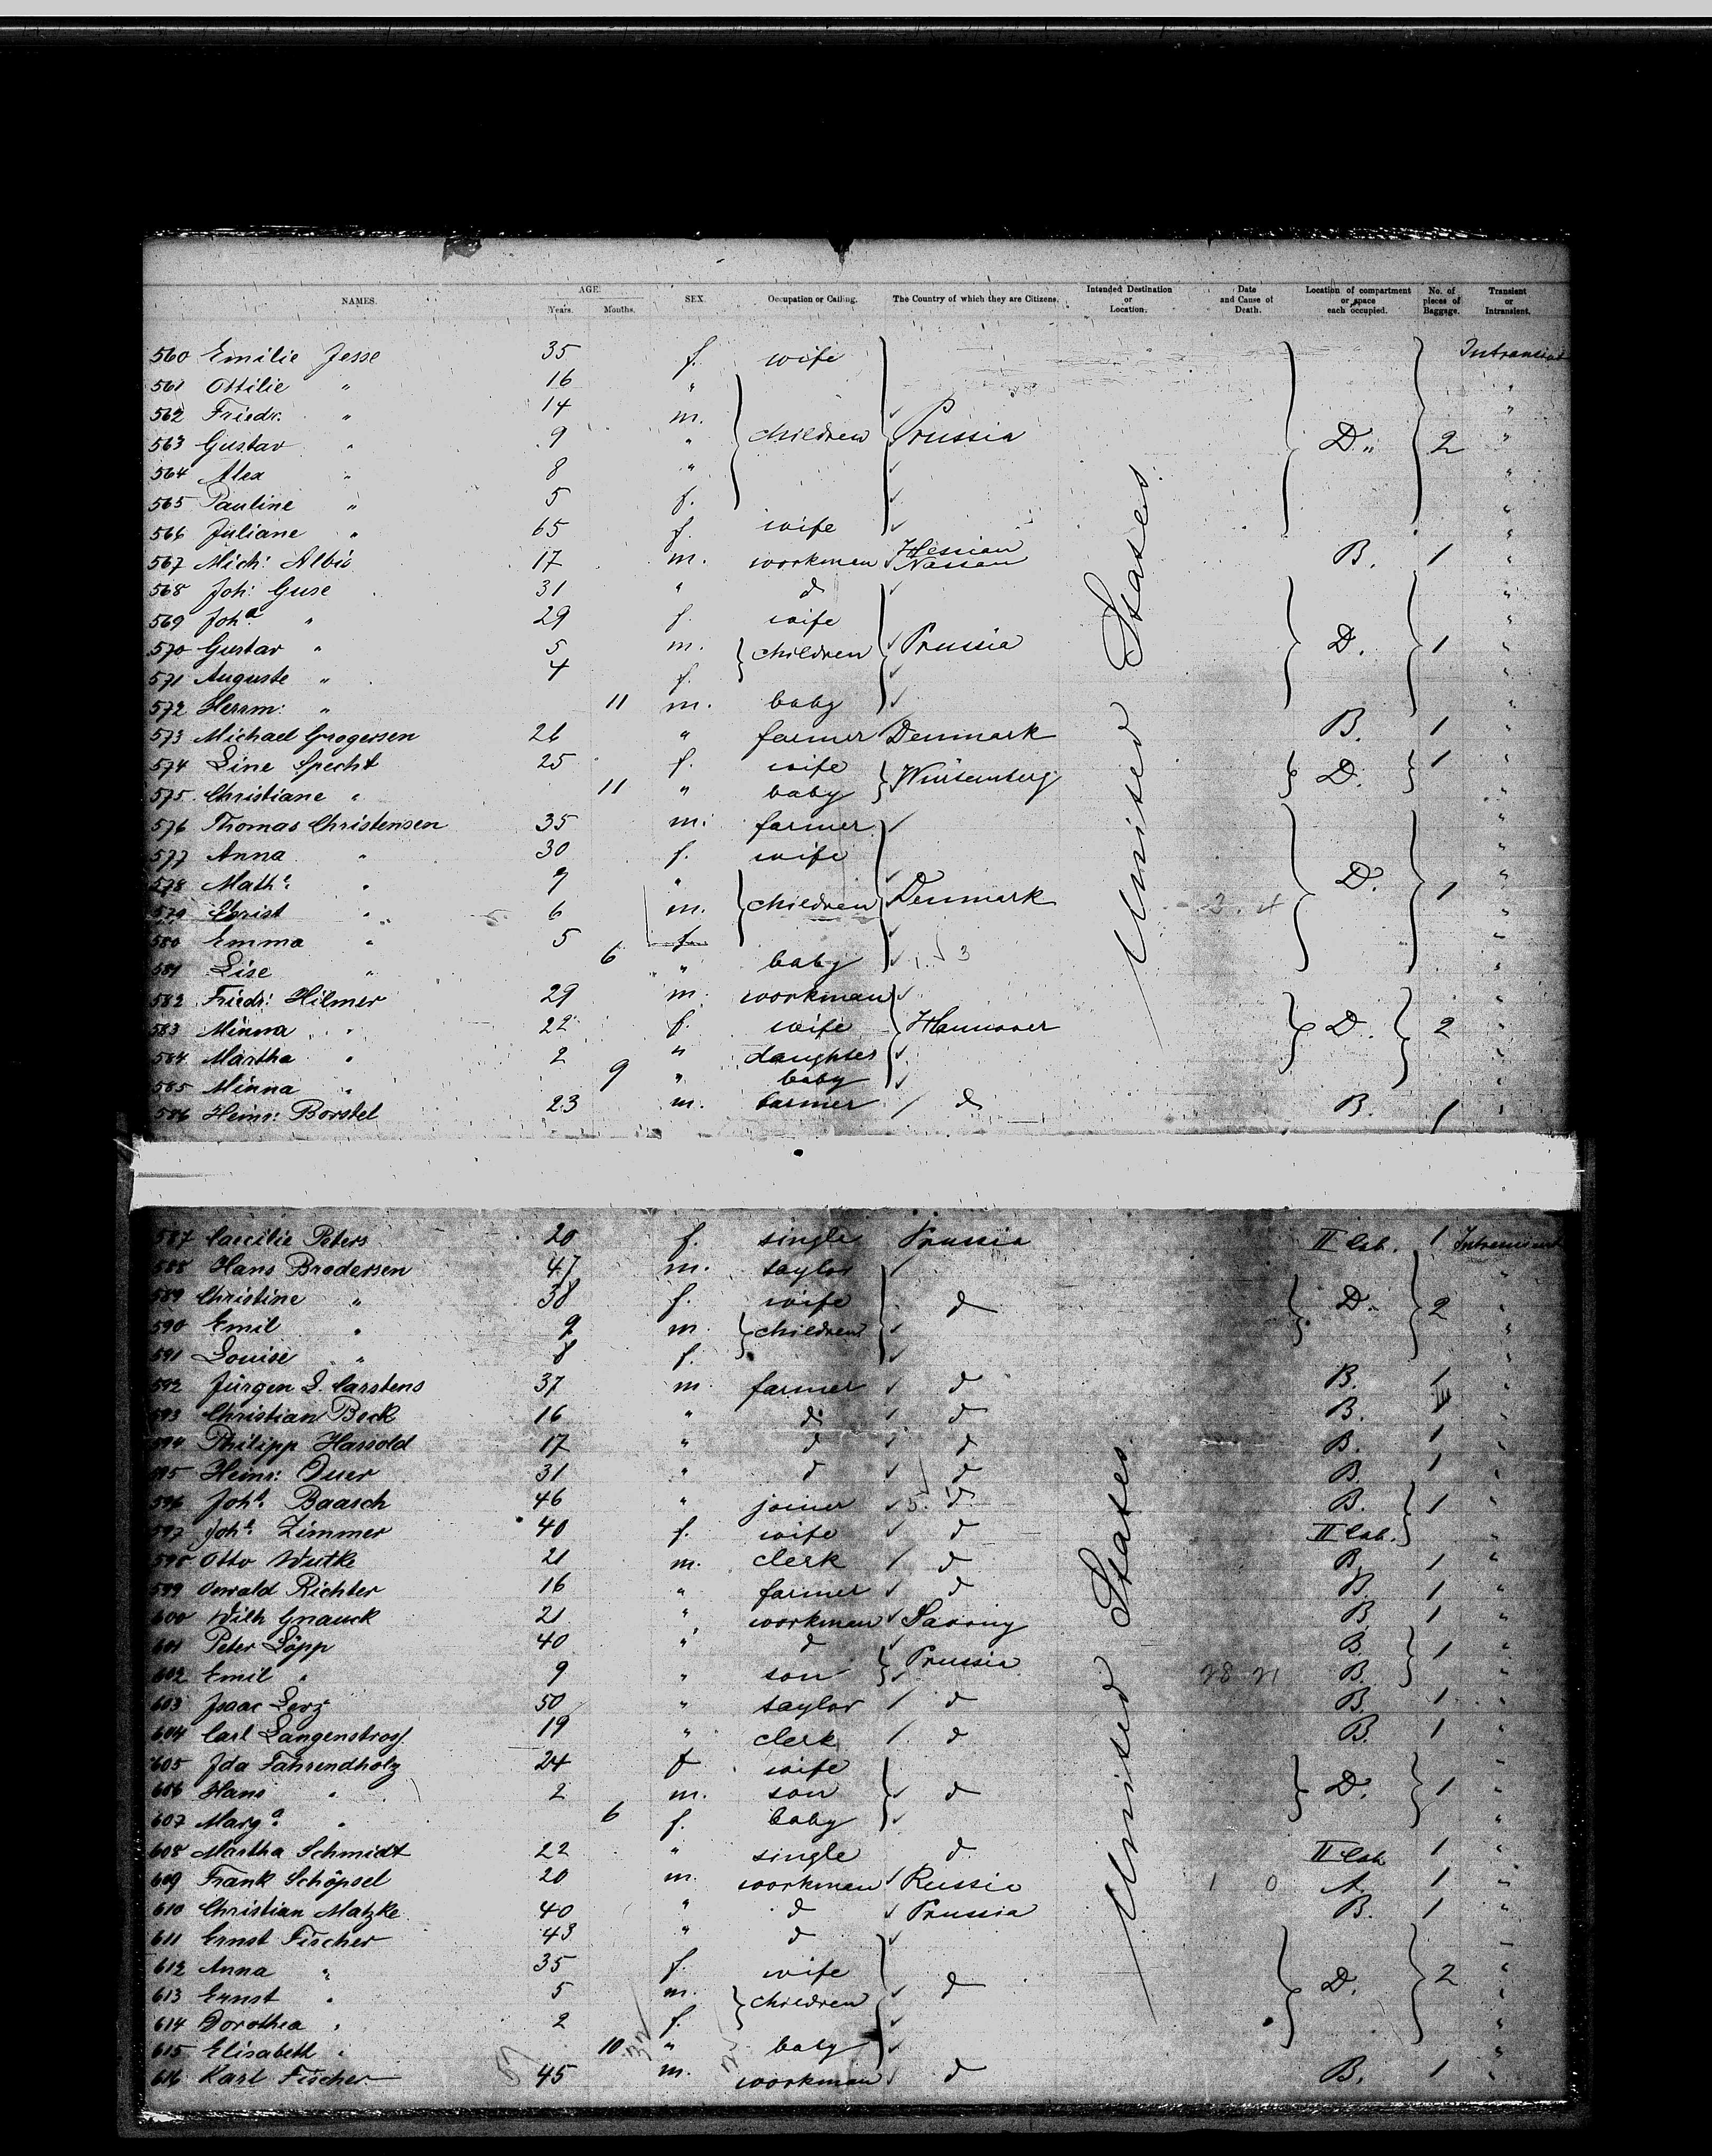 NAMES. AGE. Years. Months. SEX. Occupation or Calling. The Country of which they are Citizens. Intended Destination or Location. Date and Cause of Death. Location of compartment or space each occupied. No. of pieces of Baggage. Transient or Intransient.
560 Emilie Jesse 35 f. wife Intransient
561 Ottilie " 16 " "
562 Friedr. " 14 m. "
563 Gustav " 9 " children Prussia D. 2 "
564 Alex " 8 " "
565 Pauline " 5 f. "
566 Juliane " 65 f. wife "
567 Mich: 17 m. workman Hessian Nassau B. 1 "
568 Joh: Guse 31 " d "
569 Joha " 29 f. wife "
570 Gustav " 5 m. children Prussia D. 1 "
571 Auguste " 4 f. "
572 Herrm: " 11 m. baby "
573 Michael Grogersen 26 " farmer Denmark B. 1 "
574 Line Specht 25 f. wife Würtemberg D. 1 "
575 Christiane " 11 " baby "
576 Thomas Christensen 35 m. farmer "
577 Anna " 30 f. wife "
578 Mathe " 7 " children Denmark D. 1 "
579 Christ " 6 m. "
580 Emma " 5 f. "
581 Lise " 6 " baby "
582 Friedr: Hilmer 29 m. workman "
583 Minna " 22 f. wife Hannover D. 2 "
584 Martha " 2 " daughter "
585 Minna " 9 " baby "
586 Heinr: Borstel 23 m. farmer d B. 1 "
United States
587 Caecilie Peters 20 f. single Prussia II Cab. 1 Intransient
588 Hans Brodersen 47 m. taylor "
589 Christine " 38 f. wife d D. 2 "
590 Emil " 9 m. children "
591 Louise " 8 f. "
592 Jürgen L. Carstens 37 m. farmer d B. 1 "
593 Christian Beck 16 " d d B. 1 "
594 Philipp Hassold 17 " d d B. 1 "
595 Heinr: Duer 31 " d d B. 1 "
596 Johs. Baasch 46 " joiner d B. 1 "
597 Johe. Zimmer 40 f. wife d II Cab. "
598 Otto Wutke 21 m. clerk d B. 1 "
599 Oswald Richter 16 " farmer d B. 1 "
600 Wilh Gnauck 21 " workman Saxony B. 1 "
601 Peter Löpp 40 " d Prussia B. 1 "
602 Emil " 9 " son B. "
603 Isaac 50 " taylor d B. 1 "
604 Carl 19 " clerk d B. 1 "
605 Ida Fahrendholz 24 f wife "
606 Hans " 2 m. son d D. 1 "
607 Marga " 6 f. baby "
608 Martha Schmidt 22 " single d II Cab 1 "
609 Frank Schöpsel 20 m. workman Russia A. 1 "
610 Christian Matzke 40 " d Prussia B. 1 "
611 Ernst Fischer 43 " d "
612 Anna " 35 f. wife d D. 2 "
613 Ernst " 5 m. children "
614 Dorothea " 2 f. "
615 Elisabeth " 10 " baby "
616 Karl Fischer 45 m. workman d B. 1 "
United States